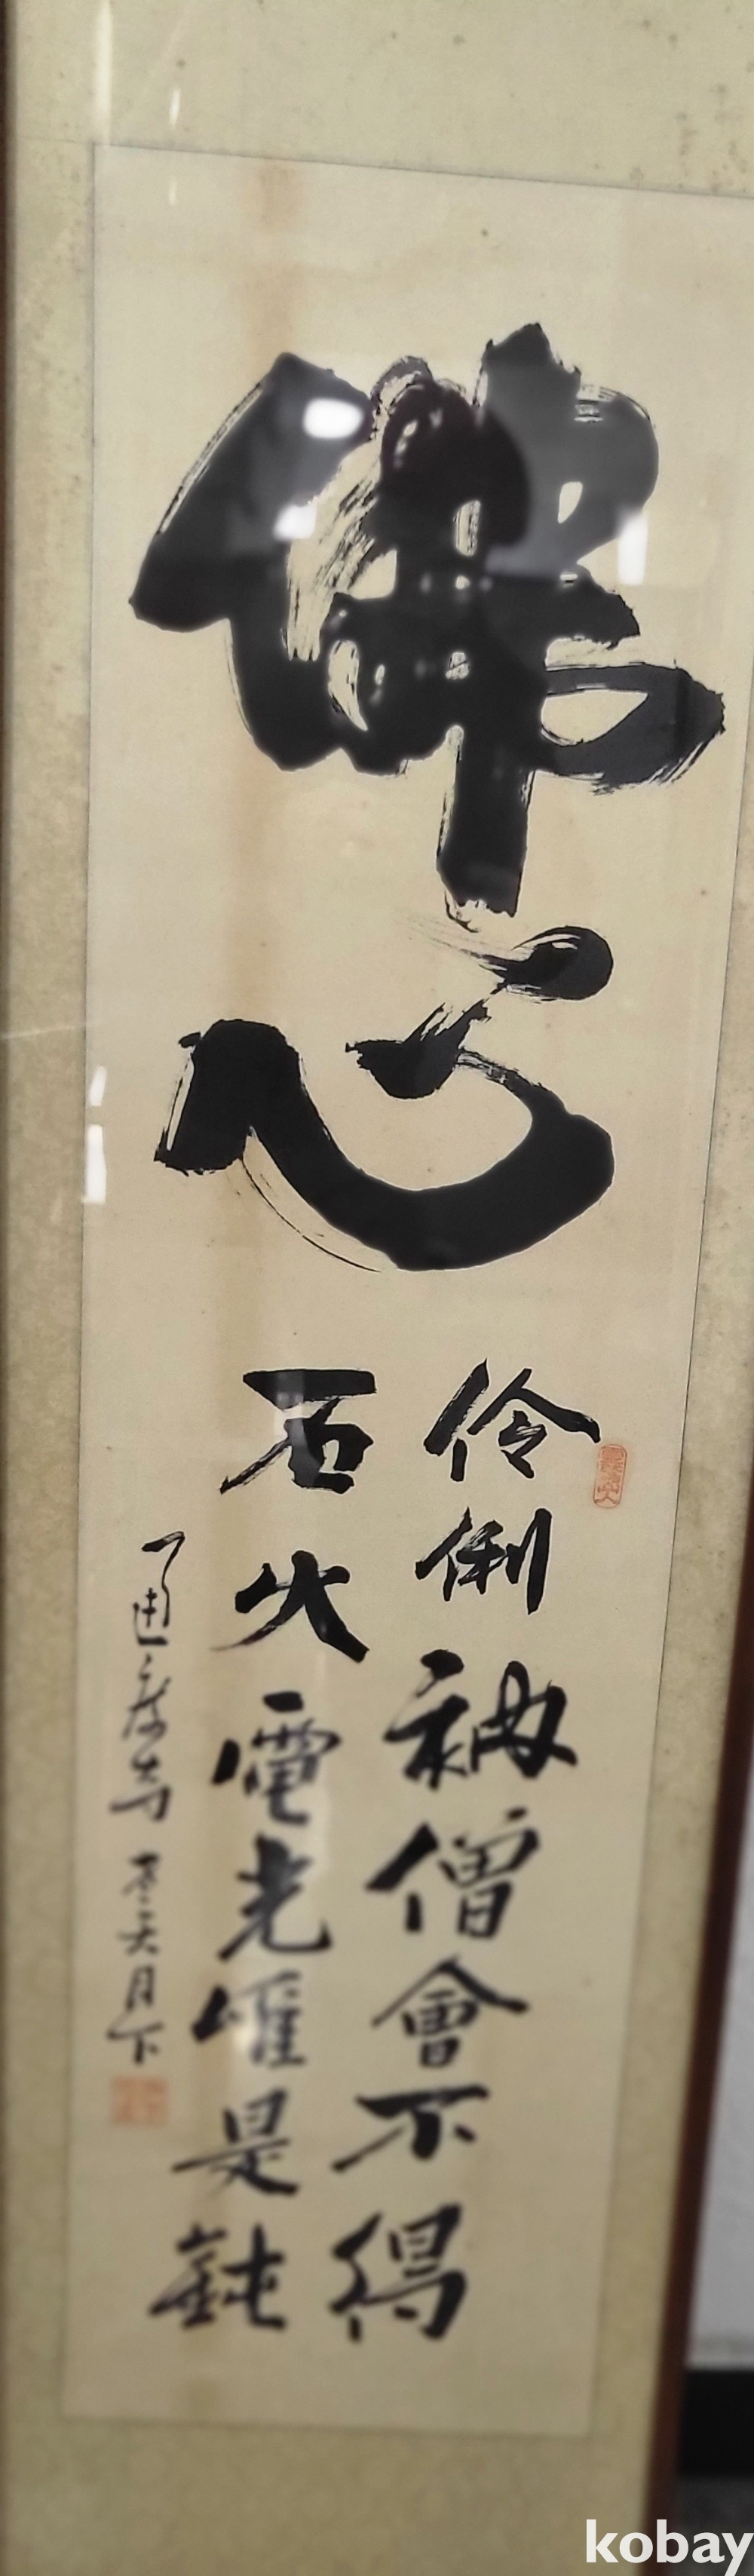 佛心
伶俐衲僧會不得
石火電光唯是鈍
通度寺 月下
kobay